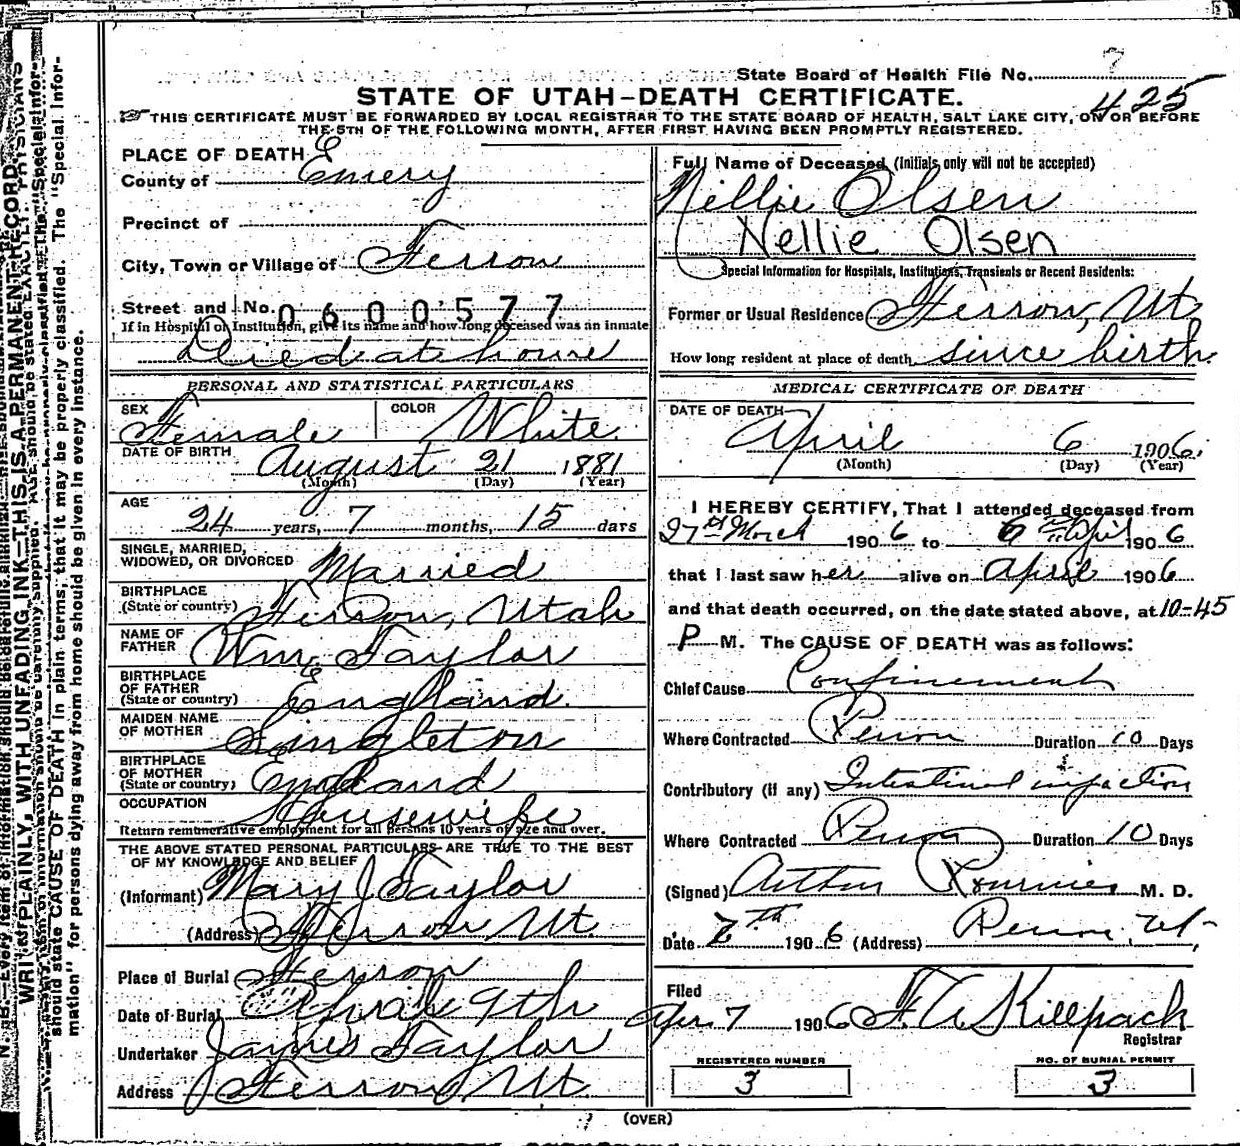 State Board of Health File No. 7
425
STATE OF UTAH-DEATH CERTIFICATE.
THIS CERTIFICATE MUST BE FORWARDED BY LOCAL REGISTRAR TO THE STATE BOARD OF HEALTH, SALT LAKE CITY, ON OR BEFORE
THE 5TH OF THE FOLLOWING MONTH, AFTER FIRST HAVING BEEN PROMPTLY REGISTERED.
PLACE OF DEATH
County of Emery
Precinct of
City, Town or Village of Ferron
Street and No. 0600577
If in Hospital or Institution, give its name and how long deceased was an inmate
Died at house
PERSONAL AND STATISTICAL PARTICULARS
SEX Female COLOR White
DATE OF BIRTH August 21 1881
(Month) (Day) (Year)
AGE 24 years, 7 months, 15 days
SINGLE, MARRIED,
WIDOWED, OR DIVORCED Married
BIRTHPLACE
(State or country) Ferron, Utah
NAME OF
FATHER Wm. Taylor
BIRTHPLACE
OF FATHER
(State or country) England.
MAIDEN NAME
OF MOTHER Singleton
BIRTHPLACE
OF MOTHER
(State or country) England
OCCUPATION Housewife
Return remunerative employment for all persons 10 years of age and over.
THE ABOVE STATED PERSONAL PARTICULARS ARE TRUE TO THE BEST
OF MY KNOWLEDGE AND BELIEF
(Informant) Mary J Taylor
(Address) Ferron Ut.
Place of Burial Ferron
Date of Burial April 9th
Undertaker James Taylor
Address Ferron, Ut.
Full Name of Deceased (Initials only will not be accepted)
Nillie Olsen
Nellie Olsen
Special Information for Hospitals, Institutions, Transients or Recent Residents:
Former or Usual Residence Ferron, Ut.
How long resident at place of death since birth.
MEDICAL CERTIFICATE OF DEATH
DATE OF DEATH
April 6 1906.
(Month) (Day) (Year)
I HEREBY CERTIFY, That I attended deceased from
27th March 1906 to 6th April 1906
that I last saw her alive on April 1906
and that death occurred, on the date stated above, at 10-45
P M. The CAUSE OF DEATH was as follows:
Chief Cause Confinement
Where Contracted Duration 10 Days
Contributory (if any) Intestinal impaction
Where Contracted Duration 10 Days
(Signed) Arthur M. D.
Date 7th 1906 (Address)
Filed
Apr. 7 1906 F. A. Killpack
Registrar
REGISTERED NUMBER
3
NO. OF BURIAL PERMIT
3
(OVER)
WRITE PLAINLY, WITH UNFADING INK—THIS IS A PERMANENT RECORD.
should state CAUSE OF DEATH in plain terms, that it may be properly classified. The "Special Infor-
mation" for persons dying away from home should be given in every instance.